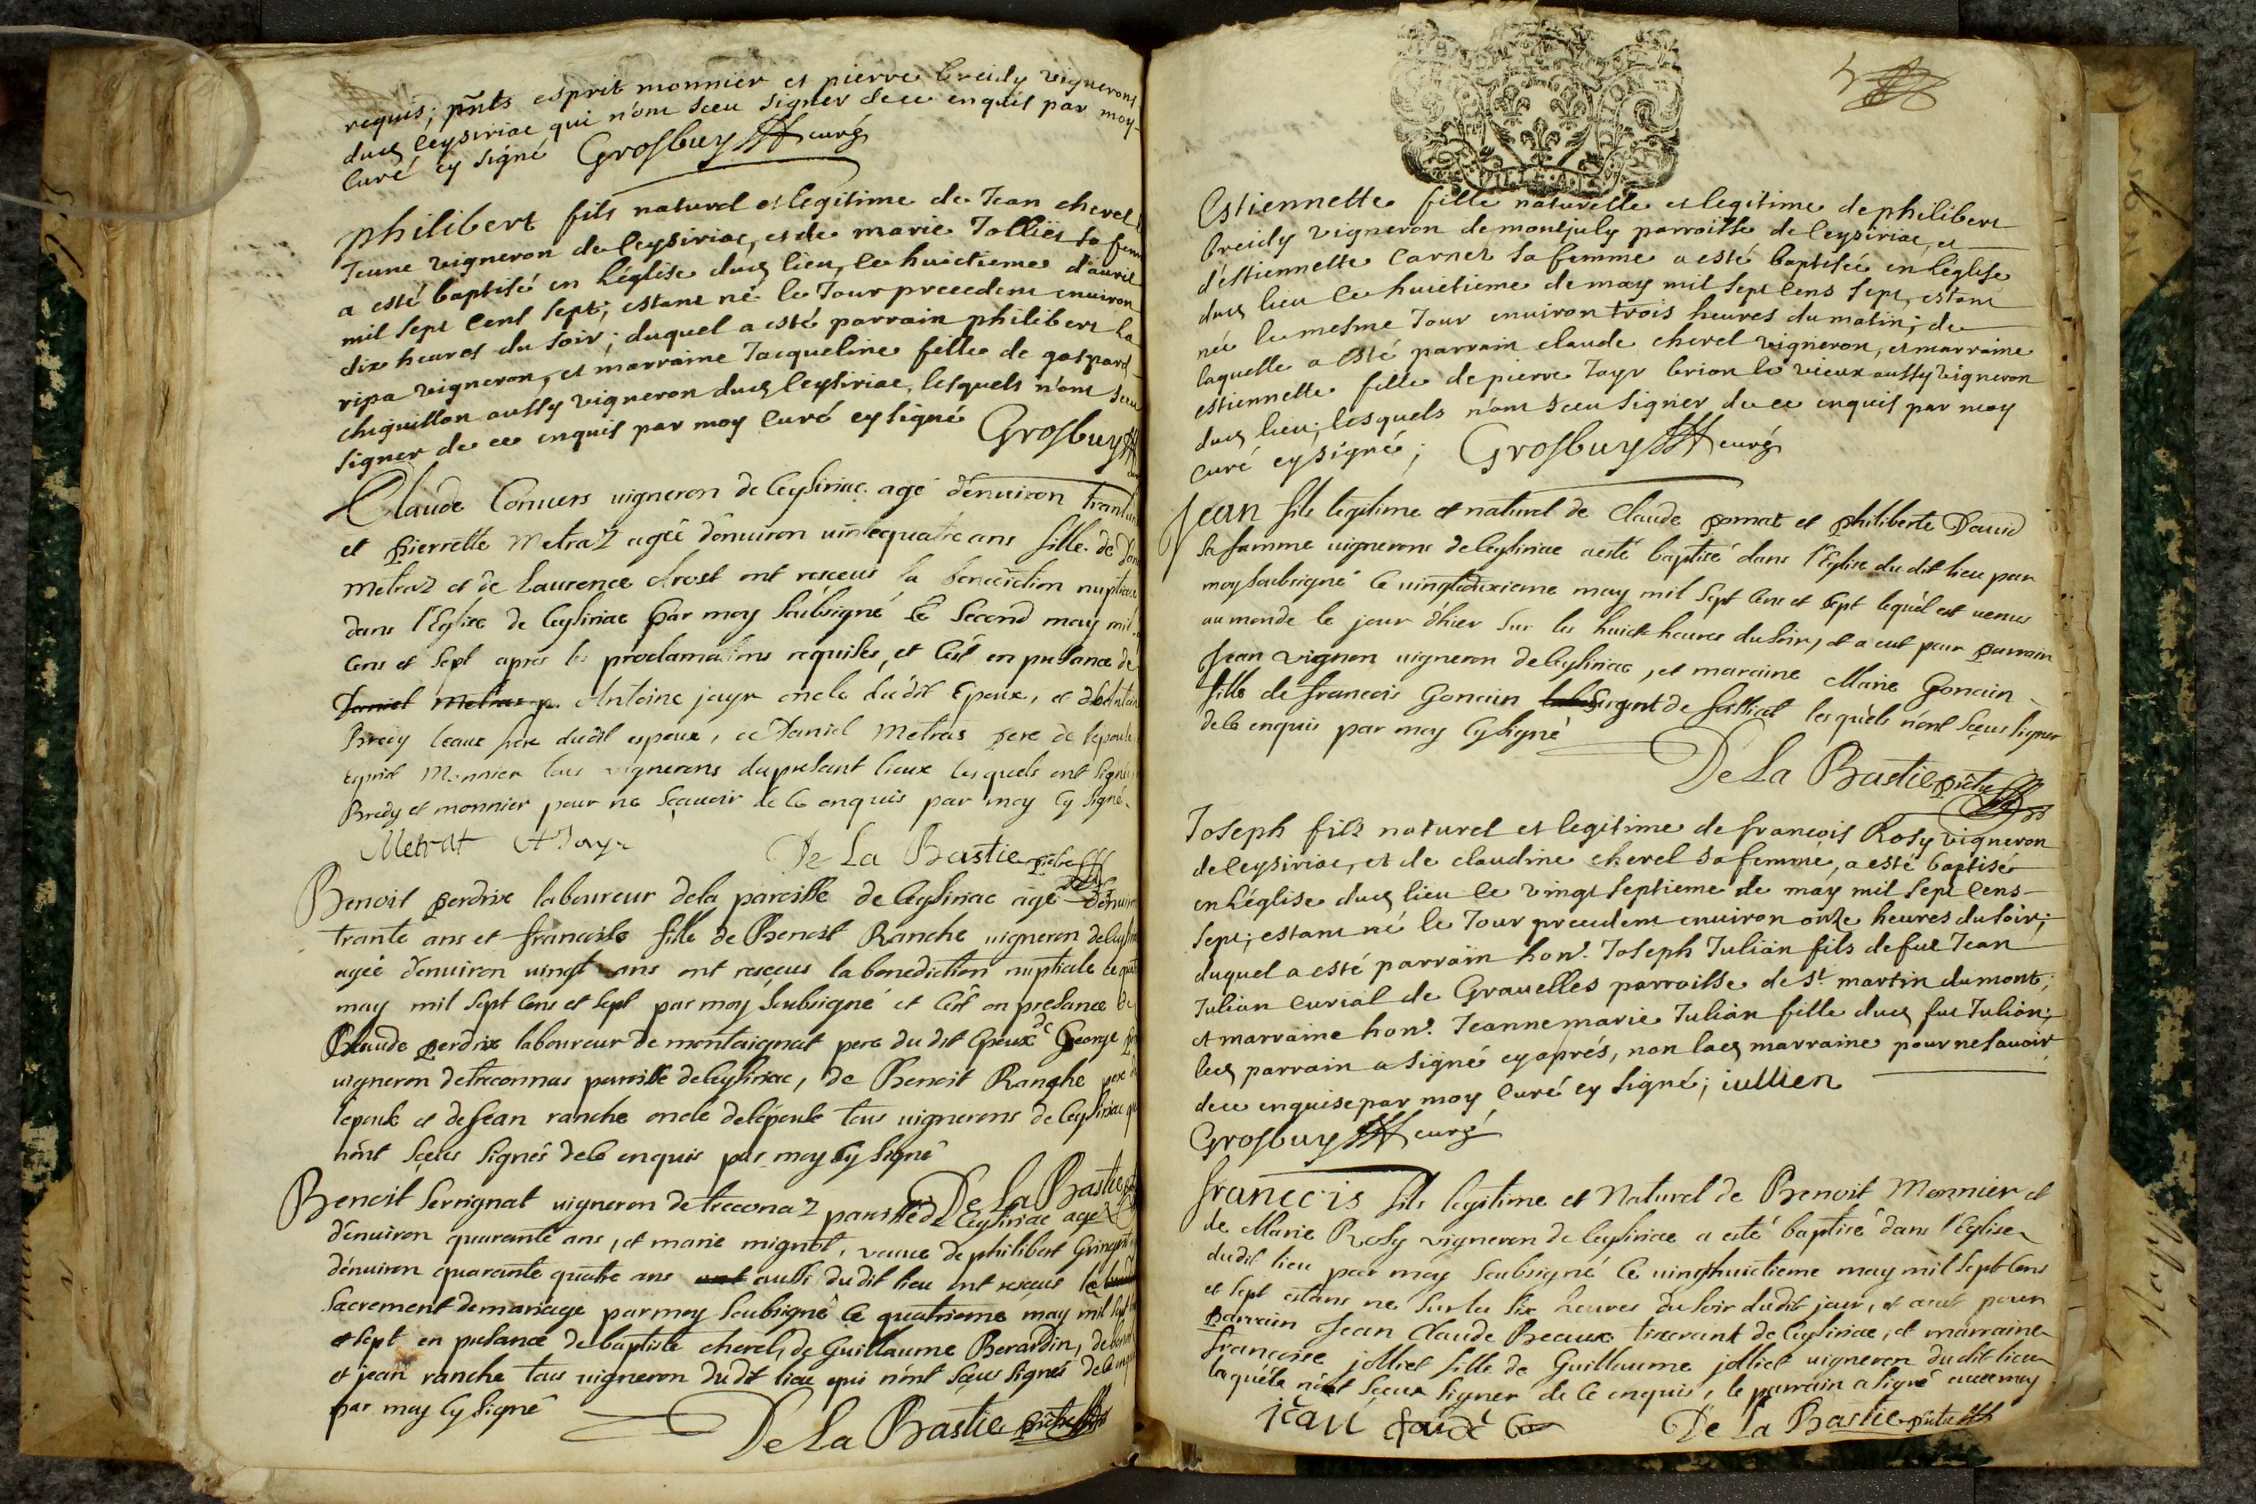 requis; pnts esprit monnier et pierre breidy vignerons
dud ceysiriac qui n'ont sceu signer de ce enquis par moy
curé cy signé Grosbuy curé
philibert fils naturel et legitime de Jean cherel
Jeune vigneron de ceysiriac, et de marie Jollier sa fem
a esté baptisé en l'église dud lieu, le huictieme d'auvril
mil sept cens sept; estant né le Jour precedent environ
dix heures du soir; duquel a esté parrain philibert La
ripa vigneron, et marraine Jacqueline fille de gaspard
chiquillon aussy vigneron dud Ceysiriac, lesquels n'ont sceu
signer de ce enquis par moy curé cy signé Grosbuy
Claude Convers vigneron de Ceysiriac agé d'enuiron trante
et pierrette Metraz agée d'enuiron uintequatre ans fille de
Metraz et de Laurence drost ont resceus la benediction nuptiale
dans l'Eglise de Ceysiriac par moy soubsigné le second may mil
Cens et sept apres les proclamations requises, et c'est en presance de
Daniel Metras p. Antoine jayr oncle du dit Epoux, et d'Antoine
Bredy beaux frere dudit espoux, ce Daniel Metras pere de l'epouse
esprit Monnier tous vignerons du presant lieux lesquels ont signé
Bredy et monnier pour ne sçauoir de ce enquis par moy cy signé
Metrat A Jayr De La Bastie pretre
Benoit perdrix laboureur de la paroisse de Ceysiriac agé d'enuiron
trante ans et francoise fille de Benoit Ranche vigneron de Ceysiriac
agée d'enuiron uingt ans ont resceus la benediction nuptiale ce quatr
may mil sept cens et sept par moy soubsigné et c'est en presance de
Claude perdrix laboureur de montaignat pere du dit Epoux de George
vigneron de treconnas paroisse de Ceysiriac, de Benoit Ranche pere de
l'epouse et de Jean ranche oncle de l'épouse tous vignerons de Ceysiriac qui
n'ont sçeus signés de ce enquis par moy cy signé
De La Bastie
Benoit Serrignat vigneron de treconaz paroisse de Ceysiriac agé
d'enuiron quarante ans, et marie mignot, veuue de philibert
d'enuiron quarante quatre ans ont aussi du dit lieu ont resceus le
sacrement de mariage par moy soubsigné ce quatrieme may mil sept
et sept en presance de baptiste cherel, de Guillaume Berardin, de
et jean ranche tous vigneron du dit lieu qui n'ont sçeus signés de ce enquis
par moy cy signé
De La Bastie pretre
Estiennette fille naturelle et legitime de philibert
breidy vigneron de montjuly parroisse de Ceysiriac, et
d'estiennette Carnet sa femme a esté baptisée en l'église
dud lieu le huictieme de may mil sept cens sept, estant
née le mesme Jour environ trois heures du matin; de
laquelle a esté parrain claude cherel vigneron, et marraine
estiennette fille de pierre Jayr brion le vieux aussy vigneron
dud lieu; lesquels n'ont sceu signer de ce enquis par moy
curé cy signé; Grosbuy curé
Jean fils legitime et naturel de Claude pomat et philiberte Dauid
sa famme uignerons de Ceysiriac a esté baptisé dans l'Eglise du dit lieu par
moy soubsigné ce uingtdeuxieme may mil sept cens et sept lequel est uenus
au monde le jour d'hier sur les huict heures du soir, et a eut pour parrain
Jean vignon vigneron de Ceysiriac, et maraine Marie Gonain
fille de francois Gonain sergent de lesquels n'ont sceus signer
de ce enquis par moy cy signé
De La Bastie pretre
Joseph fils naturel et legitime de francois Rosy vigneron
de ceysiriac, et de claudine cherel sa femme, a esté baptisé
en l'église dud lieu le vingt septieme de may mil sept cens
sept; estant né le Jour precedent environ onze heures du soir;
duquel a esté parrain hon. Joseph Julian fils de fue Jean
Julian curial de Grauelles parroisse de st martin du mont;
et marraine hon. Jeanne marie Julian fille dud fue Julian;
led parrain a signé cy aprés, non lad marraine pour ne sauoir
de ce enquise par moy curé cy signé; iullien
Grosbuy curé
francois fils legitime et Naturel de Benoit Monnier et
de Marie Rosy vigneron de Ceysiriac a esté baptisé dans l'Eglise
du dit lieu par moy soubsigné ce uingthuictieme may mil sept cens
et sept estans né sur les six heures du soir dudit jour, et a eut pour
parrain Jean Claude Beaux tixerant de Ceysiriac, et marraine
francoise jolliet fille de Guillaume jolliet uigneron du dit lieu
laquéle n'ont sçeux signer de ce enquis, le parrain a signé auec moy
jean
De La Bastie pretre